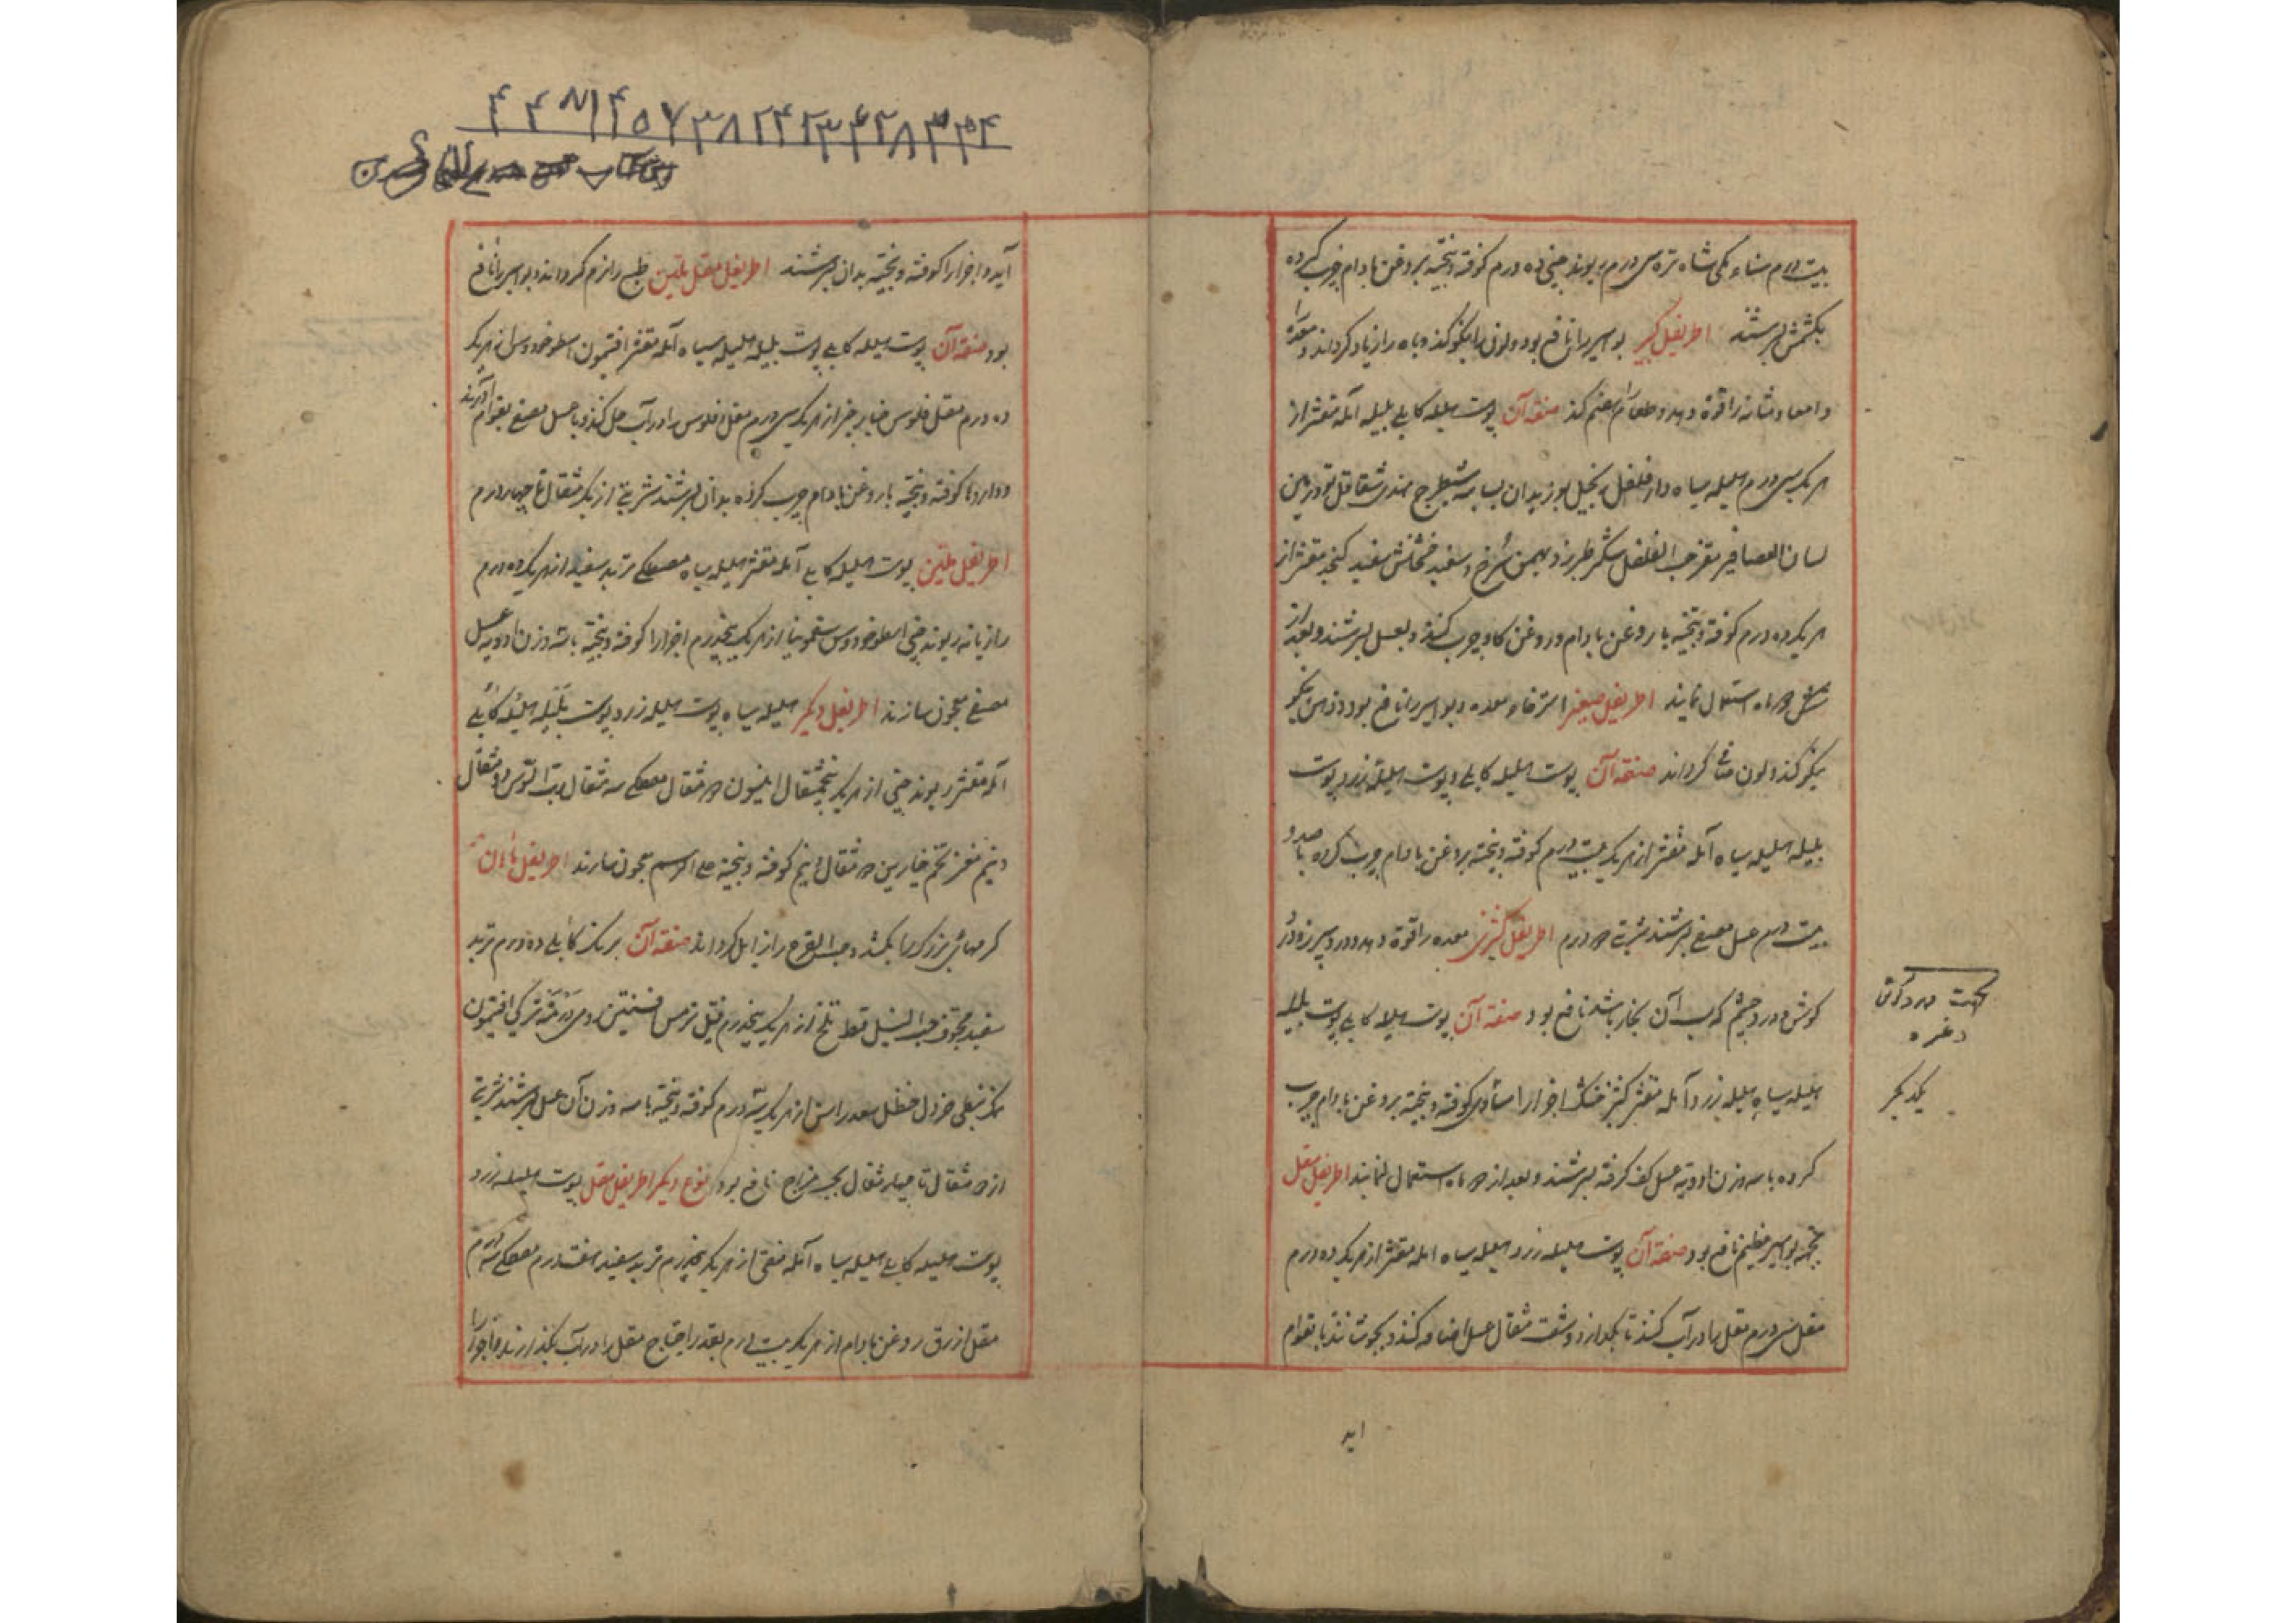 بیست درم سناء مکی شاه تره سی درم ریوند چینی ده درم کوفته و بیخته بروغن بادام چرب کرده
بکشمش بسرشند اطریفل کبیر بواسیر را نافع بود و لون را نیکو کند و باه را زیاد کرداند و معده
و امعا و مثانه را قوة دهد و طعام هضم کند صفة آن پوست هلیله کابلی بلیله آمله مقشر از
هریک سی درم هلیله سیاه دارفلفل زنجبیل بوزیدان بسباسه شیطرج هندی شقاقل تودرین
لسان العصافیر مغز حب الفلفل شکر طبرزد بهمن سرخ و سفید خشخاش سفید کنجد مقشر از
هریک ده درم کوفته و بیخته با روغن بادام و روغن کاو چرب کنند و بعسل بسرشند و بعد از
شش ماه استعمال نمایند اطریفل صغیر استرخاء معده و بواسیر را نافع بود و ذهن نیکو
نیکو کند و لون صافی کرداند صفة آن پوست هلیله کابلی و پوست هلیله زرد پوست
بلیله هلیله سیاه آمله مقشر از هریک بیست درم کوفته و بیخته بروغن بادام چرب کرده با صد و
بیست درم عسل مصفی بسرشند شربتی درم اطریفل کشنیزی معده را قوة دهد و درد سر و درد
کوش و درد چشم که سبب آن بخار باشد نافع بود صفة آن پوست هلیله کابلی پوست بلیله
هلیله سیاه هلیله زرد آمله مقشر کشنیز خشک اجزا را مساوی کوفته و بیخته بروغن بادام چرب
کرده با سه وزن ادویه عسل کف کرفته بسرشند و بعد از ماه استعمال نمایند اطریفل مقل
بجهة بواسیر عظیم نافع بود صفة آن پوست هلیله زرد هلیله سیاه آمله مقشر از هریک ده درم
مقل سی درم مقل را در آب کنند تا بکدازد و شصت مثقال عسل اضافه کنند و بجوشانند تا بقوام
اید
وغیره
آید و اجزا را کوفته و بیخته بدان بسرشند اطریفل مقل ملین طبع را نرم کرداند و بواسیر را نافع
بود صفة آن پوست هلیله کابلی پوست بلیله هلیله سیاه آمله مقشر افتیمون اسطوخودوس از هریک
ده درم مقل فلوس خیارچنبر از هریک سی درم مقل و فلوس را در آب حل کنند و با عسل مصفی بقوام آورند
و داروها کوفته و بیخته با روغن بادام چرب کرده بدان بسرشند شربتی از یک مثقال تا چهار درم
اطریفل ملین پوست هلیله کابلی آمله مقشر هلیله سیاه مصطکی تربد سفید از هریک ده درم
رازیانه ریوند چینی اسطوخودوس سقمونیا از هریک پنجدرم اجزا را کوفته و بیخته با سه وزن ادویه عسل
مصفی معجون سازند اطریفل دیکر هلیله سیاه پوست هلیله زرد پوست بلیله هلیله کابلی
آمله مقشر ریوند چینی از هریک پنجمثقال انیسون مثقال مصطکی سه مثقال رب السوس دو مثقال
و نیم مغز تخم خیارین مثقال و نیم کوفته و بیخته علی الرسم معجون سازند اطریفل
کرمهای بزرک را بکشد و حب القرع را زایل کرداند صفة آن برنک کابلی ده درم تربد
سفید مجوف حب النیل قسط تلخ از هریک پنجدرم قنبیل ترمس افسنتین رومی درمنه ترکی افتیمون
نمک نبطی خردل حنظل سعد راسن از هریک سه درم کوفته و بیخته با سه وزن آن عسل بسرشند شربتی
از مثقال تا چهار مثقال بحسب مزاج نافع بود نوع دیکر اطریفل مقل پوست هلیله زرد
پوست هلیله کابلی هلیله سیاه آمله منقی از هریک پنجدرم تربد سفید هفتدرم مصطکی سه درم
مقل ازرق روغن بادام از هریک بیست درم بقدر احتیاج مقل را در آب بکذارند و اجزا را